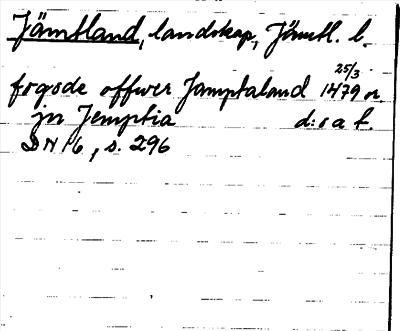 Jämtland, landskap, Jämtl. l.
25/3
fogode offwer Jamptaland 1479 or.
jn Jemptia d:o a f.
DN 16, s. 296